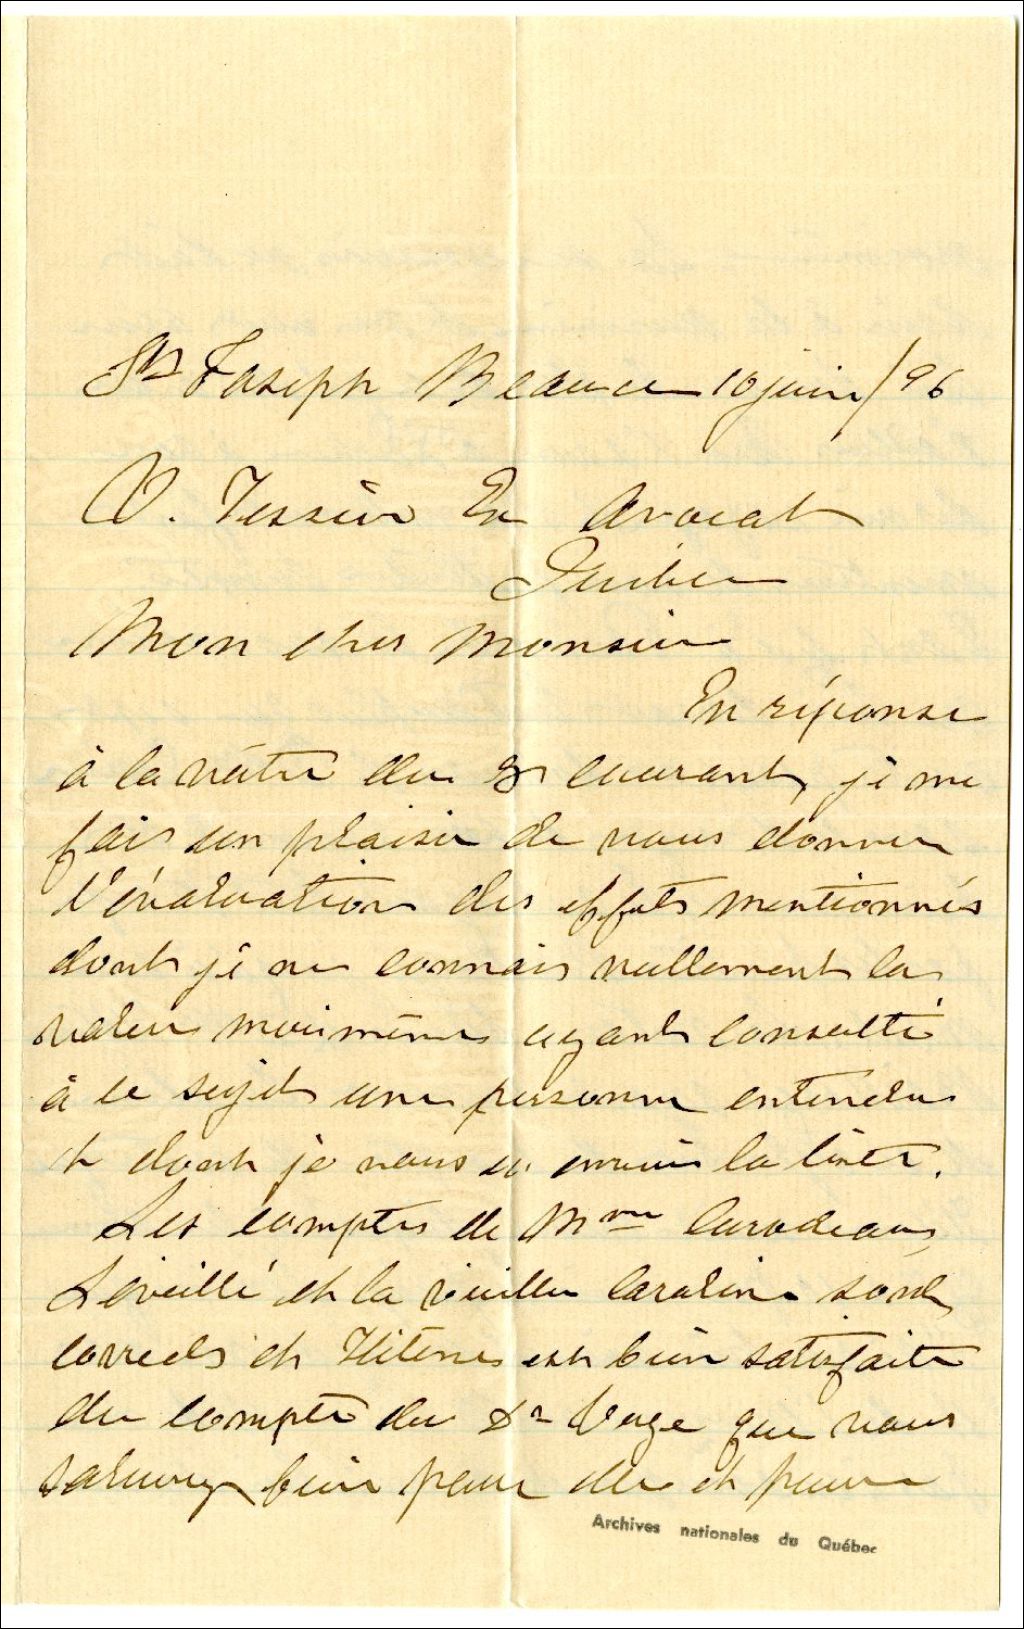 St Joseph Beauce 10 juin / 96
V. Tessier Er Avocat
Québec
Mon cher Monsieur
En réponse
à la vôtre du courant, je me
fais un plaisir de vous donner
l'évaluation des effets mentionnés
dont je ne connais nullement la
valeur moi même ayant consulté
à ce sujet une personne entendue
et dont je vous en envoie la liste.
Les comptes de Mme
Léveillé et la vieille Caroline sont
corrects et est bien satisfaite
du compte du Dr que vous
bien pour elle et pour
Archives nationales du Québec